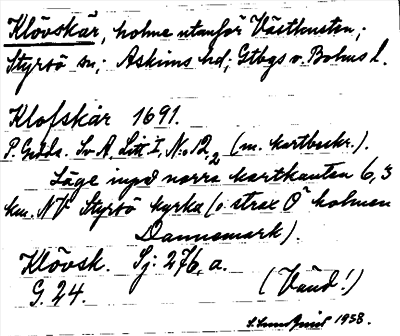 Klövskär, holme utanför Västkusten;
Styrsö sn; Askims hd; Gtbgs o. Bohus l.
Klofskär 1691.
P. Gedda. Sv A, Litt I, No 12,2 (m. kartbeskr.).
Läge invid norra kartkanten 6,3
km. NV Styrsö kyrka (o strax Ö holmen
Dannemark).
Klövsk. Sj: 276, a.
G. 24. (Vänd!)
1938.